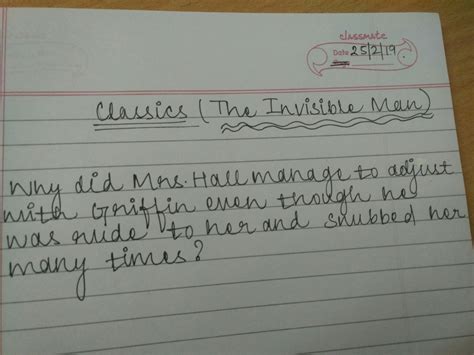 classmate
Date 25/2/19
Classics (The Invisible Man)
Why did Mrs. Hall manage to adjust
with Griffin even though he
was rude to her and snubbed her
many times?